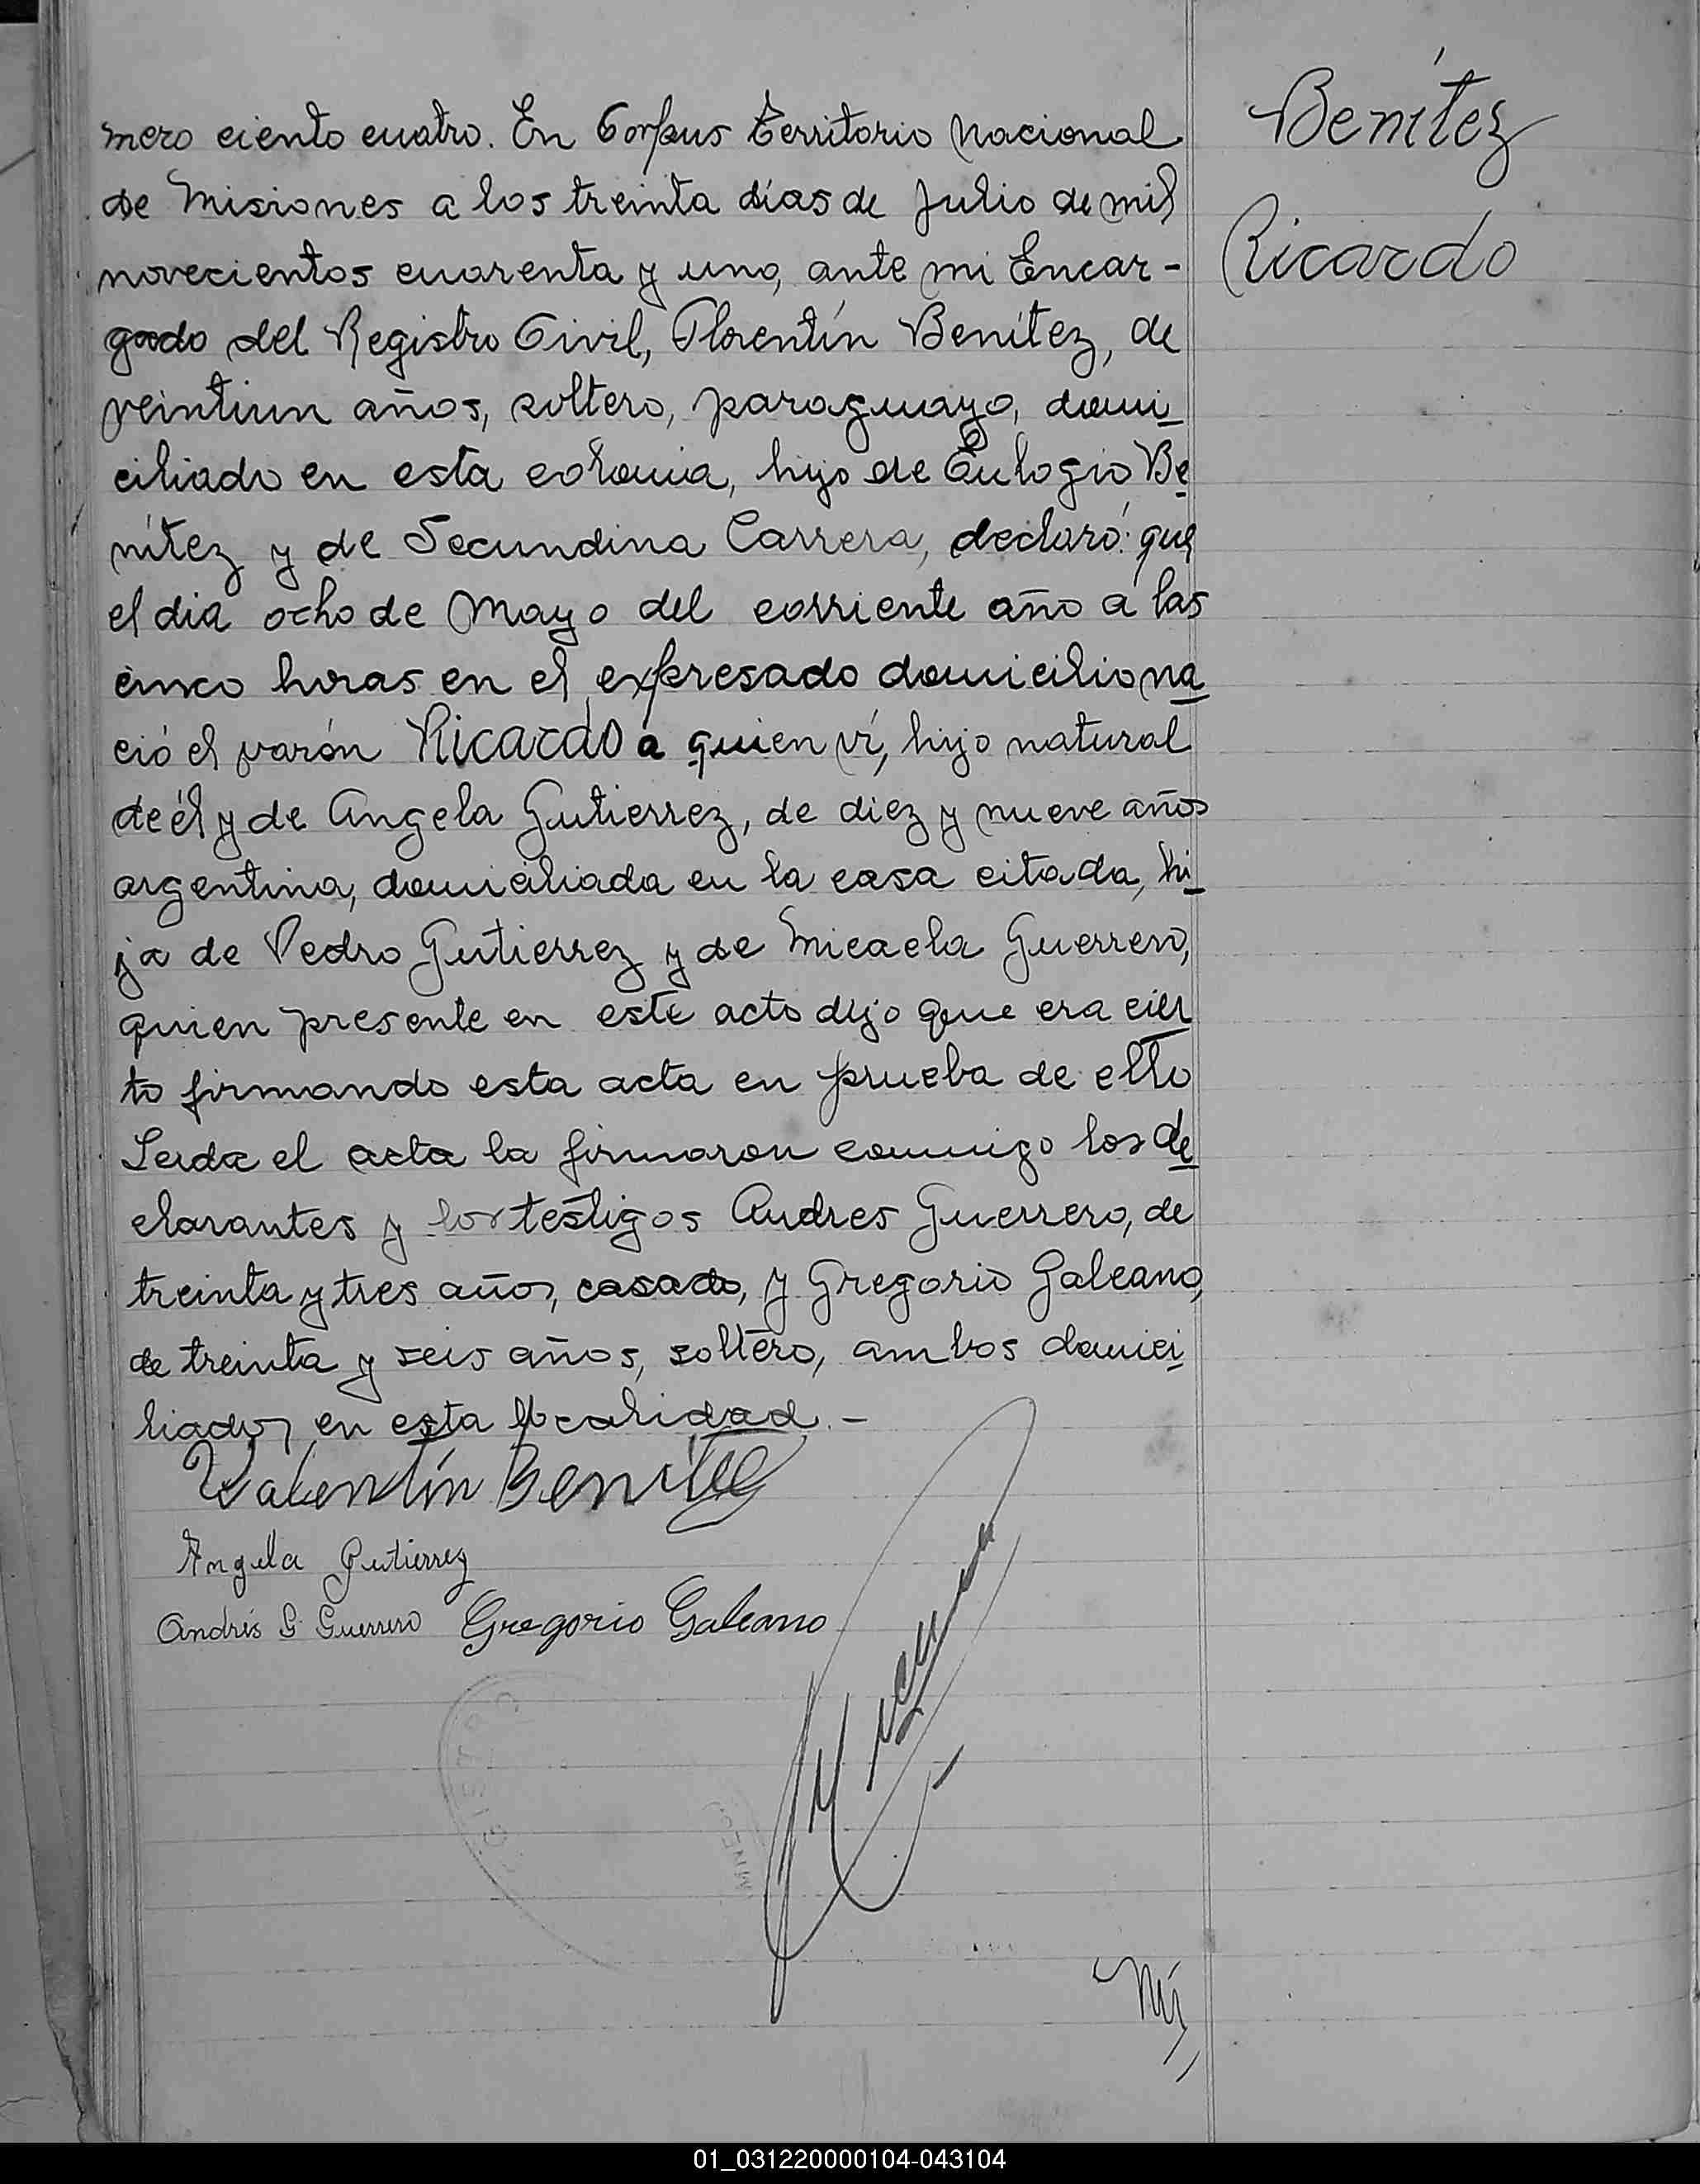 Benítez
Ricardo
mero ciento cuatro. En Corpus Territorio Nacional
de Misiones a los treinta días de Julio de mil
novecientos cuarenta y uno, ante mi Encar-
gado del Registro Civil, Florentín Benítez, de
veintiun años, soltero, paraguayo, domi
ciliado en esta colonia, hijo de Eulogio Be
nítez y de Secundina Carrera, declaró: que
el dia ocho de Mayo del corriente año a las
cinco horas en el expresado domicilio na
ció el varón Ricardo a quien ví, hijo natural
de él y de Angela Gutierrez, de diez y nueve años
argentina, domiciliada en la casa citada, hi
ja de Pedro Gutierrez y de Micaela Guerrero,
quien presente en este acto dijo que era cier
to firmando esta acta en prueba de ello
Leida el acta la firmaron conmigo los de
clarantes y los testigos Andres Guerrero, de
treinta y tres años, casado, y Gregorio Galeano,
de treinta y seis años, soltero, ambos domici
liados en esta localidad.-
Valentín Benítez
Angela Gutierrez
Andrés G Guerrero Gregorio Galeano
01_031220000104-043104